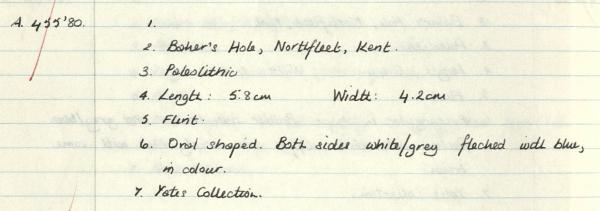 A. 455'80. 1.
2. Baker's Hole, Northfleet, Kent.
3. Paleolithic
4. Length: 5.8cm Width: 4.2cm
5. Flint.
6. Oval shaped. Both sides white/grey flecked with blue,
in colour.
7. Yates Collection.